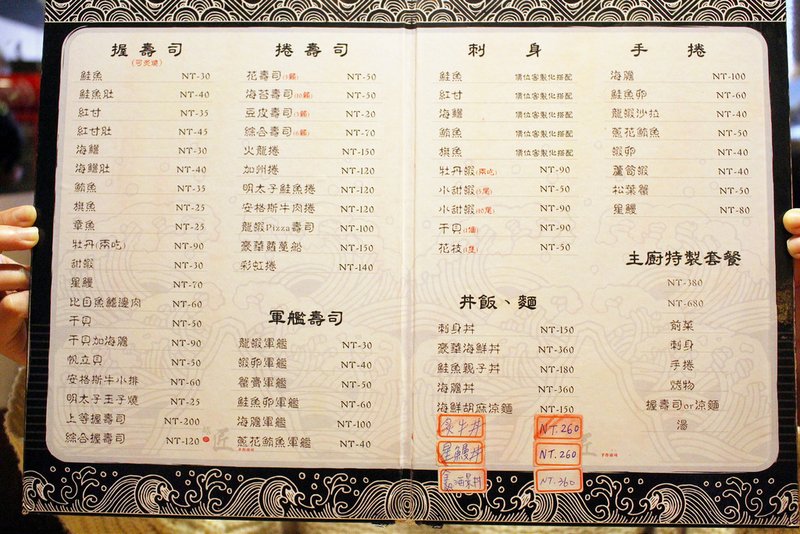 握壽司
(可炙燒)
鮭魚 NT-30
鮭魚肚 NT-40
紅甘 NT-35
紅甘肚 NT-45
海鱺 NT-30
海鱺肚 NT-40
鮪魚 NT-35
旗魚 NT-25
章魚 NT-25
牡丹(兩吃) NT-90
甜蝦 NT-30
星鰻 NT-70
比目魚鰭邊肉 NT-60
干貝 NT-50
干貝加海膽 NT-90
帆立貝 NT-50
安格斯牛小排 NT-60
明太子玉子燒 NT-25
上等握壽司 NT-200
綜合握壽司 NT-120
捲壽司
花壽司 NT-50
海苔壽司 NT-50
豆皮壽司 NT-20
綜合壽司 NT-70
火龍捲 NT-150
加州捲 NT-120
明太子鮭魚捲 NT-120
安格斯牛肉捲 NT-120
龍蝦Pizza壽司 NT-100
豪華蘿蔔船 NT-150
彩虹捲 NT-140
軍艦壽司
龍蝦軍艦 NT-30
蝦卵軍艦 NT-40
蟹膏軍艦 NT-50
鮭魚卵軍艦 NT-60
海膽軍艦 NT-100
蔥花鮪魚軍艦 NT-40
匠
刺身
鮭魚 價位客製化搭配
紅甘 價位客製化搭配
海鱺 價位客製化搭配
鮪魚 價位客製化搭配
旗魚 價位客製化搭配
牡丹蝦(兩吃) NT-90
小甜蝦(5尾) NT-50
小甜蝦(10尾) NT-90
干貝(1個) NT-90
花枝 NT-50
丼飯、麵
刺身丼 NT-150
豪華海鮮丼 NT-360
鮭魚親子丼 NT-180
海膽丼 NT-360
海鮮胡麻涼麵 NT-150
炙牛丼 NT.260
星鰻丼 NT.260
NT.360
手捲
海膽 NT-100
鮭魚卵 NT-60
龍蝦沙拉 NT-40
蔥花鮪魚 NT-50
蝦卵 NT-40
蘆筍蝦 NT-40
松葉蟹 NT-50
星鰻 NT-80
主廚特製套餐
NT-380
NT-680
前菜
刺身
手捲
烤物
握壽司or涼麵
湯
匠